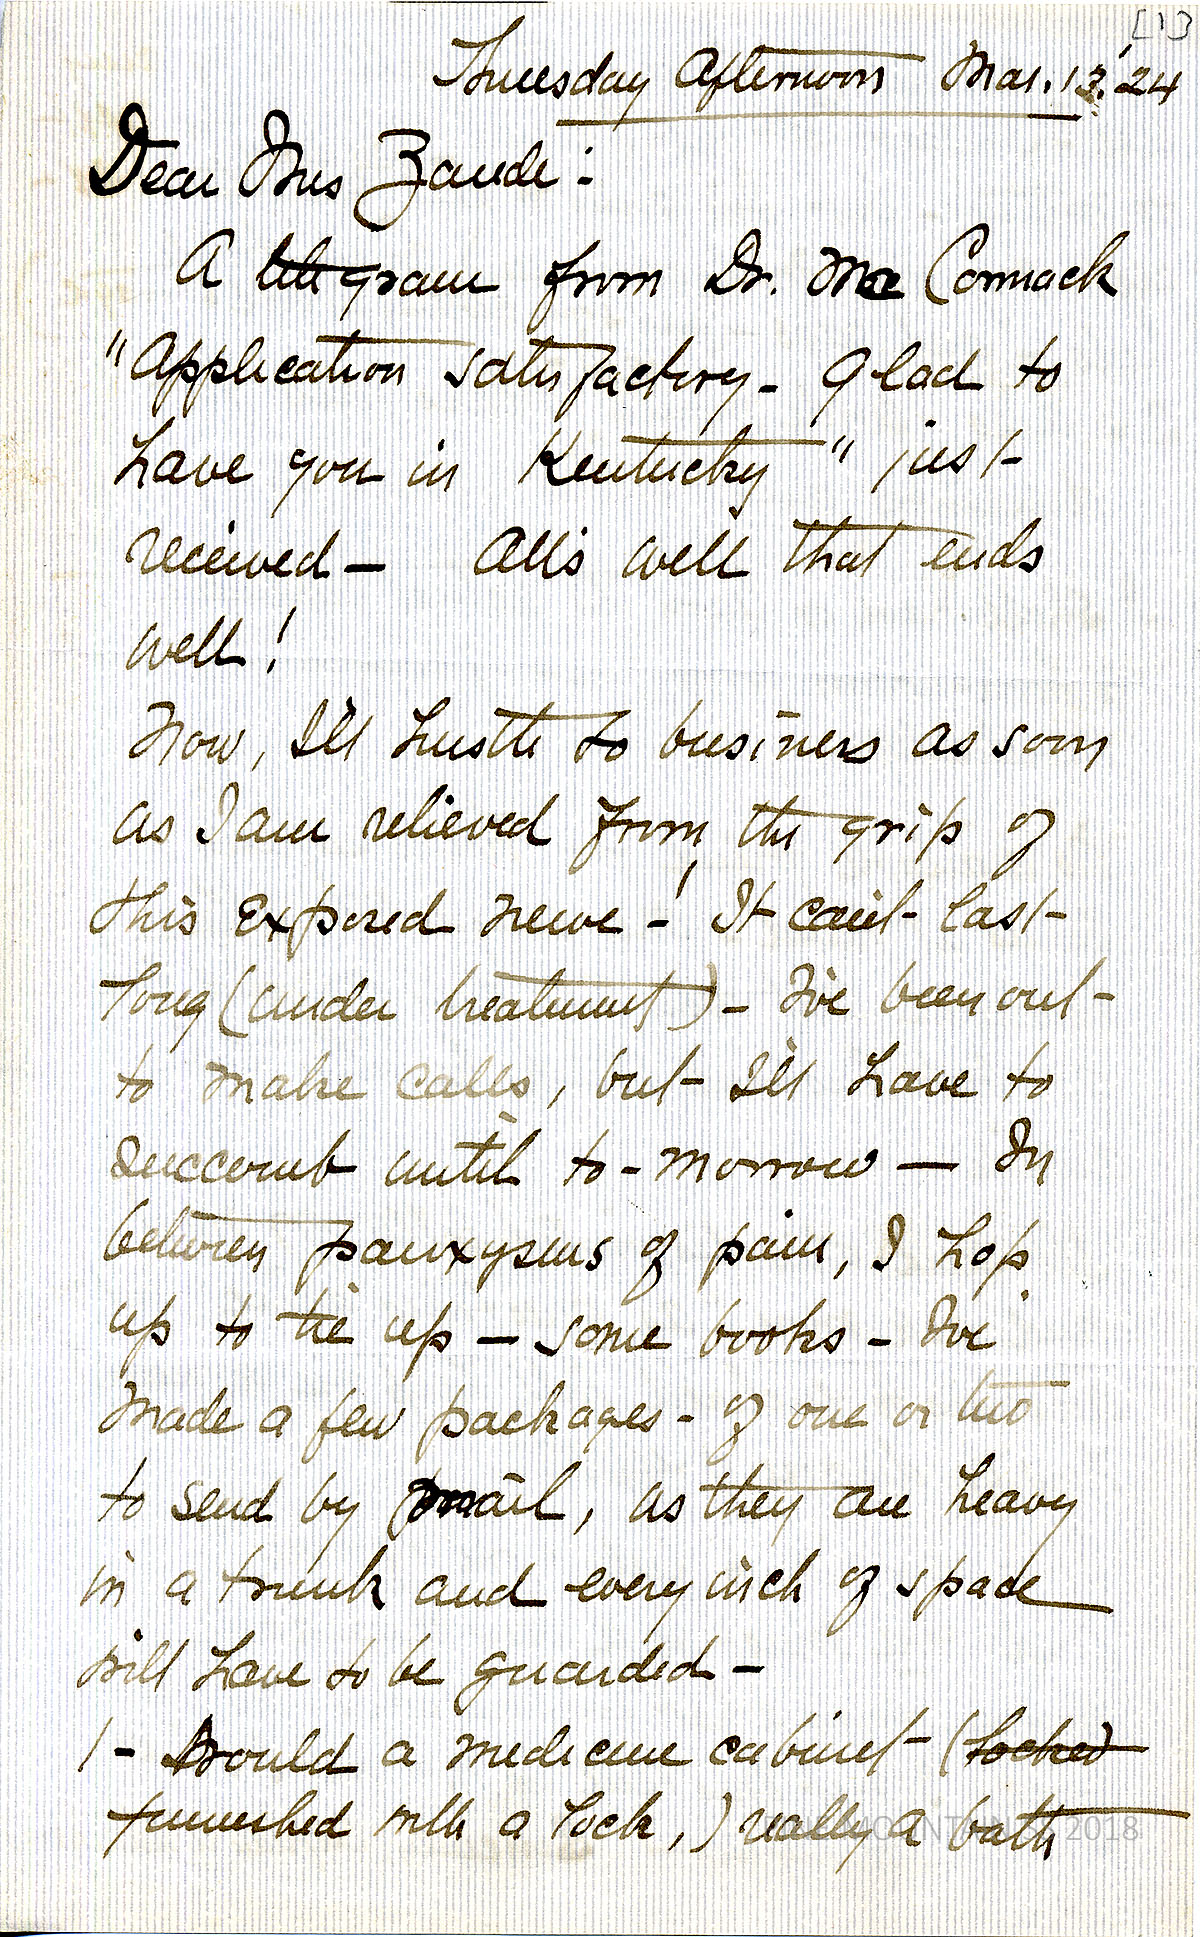 [1]
Thursday Afternoon Mar. 13, '24
Dear Mrs Zande:
A telegram from Dr. Mc Cormack
"Application satisfactory - Glad to
have you in Kentucky" just
received - All's well that ends
well!
Now, I'll hustle to business as soon
as I am relieved from the grip of
this exposed nerve -! It can't last
long (under treatment) - I've been out
to make calls, but I'll have to
succomb until to-morrow - In
between paroxysms of pain, I hop
up to tie up - some books - I've
made a few packages - of one or two
to send by mail, as they are heavy
in a trunk and every inch of space
will have to be guarded -
1 - Would a medicine cabinet (locked
furnished with a lock,) really a bath
2018